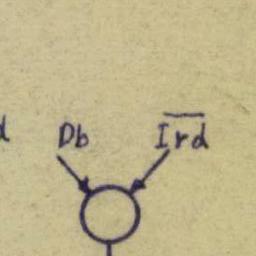 Db I r̅d̅